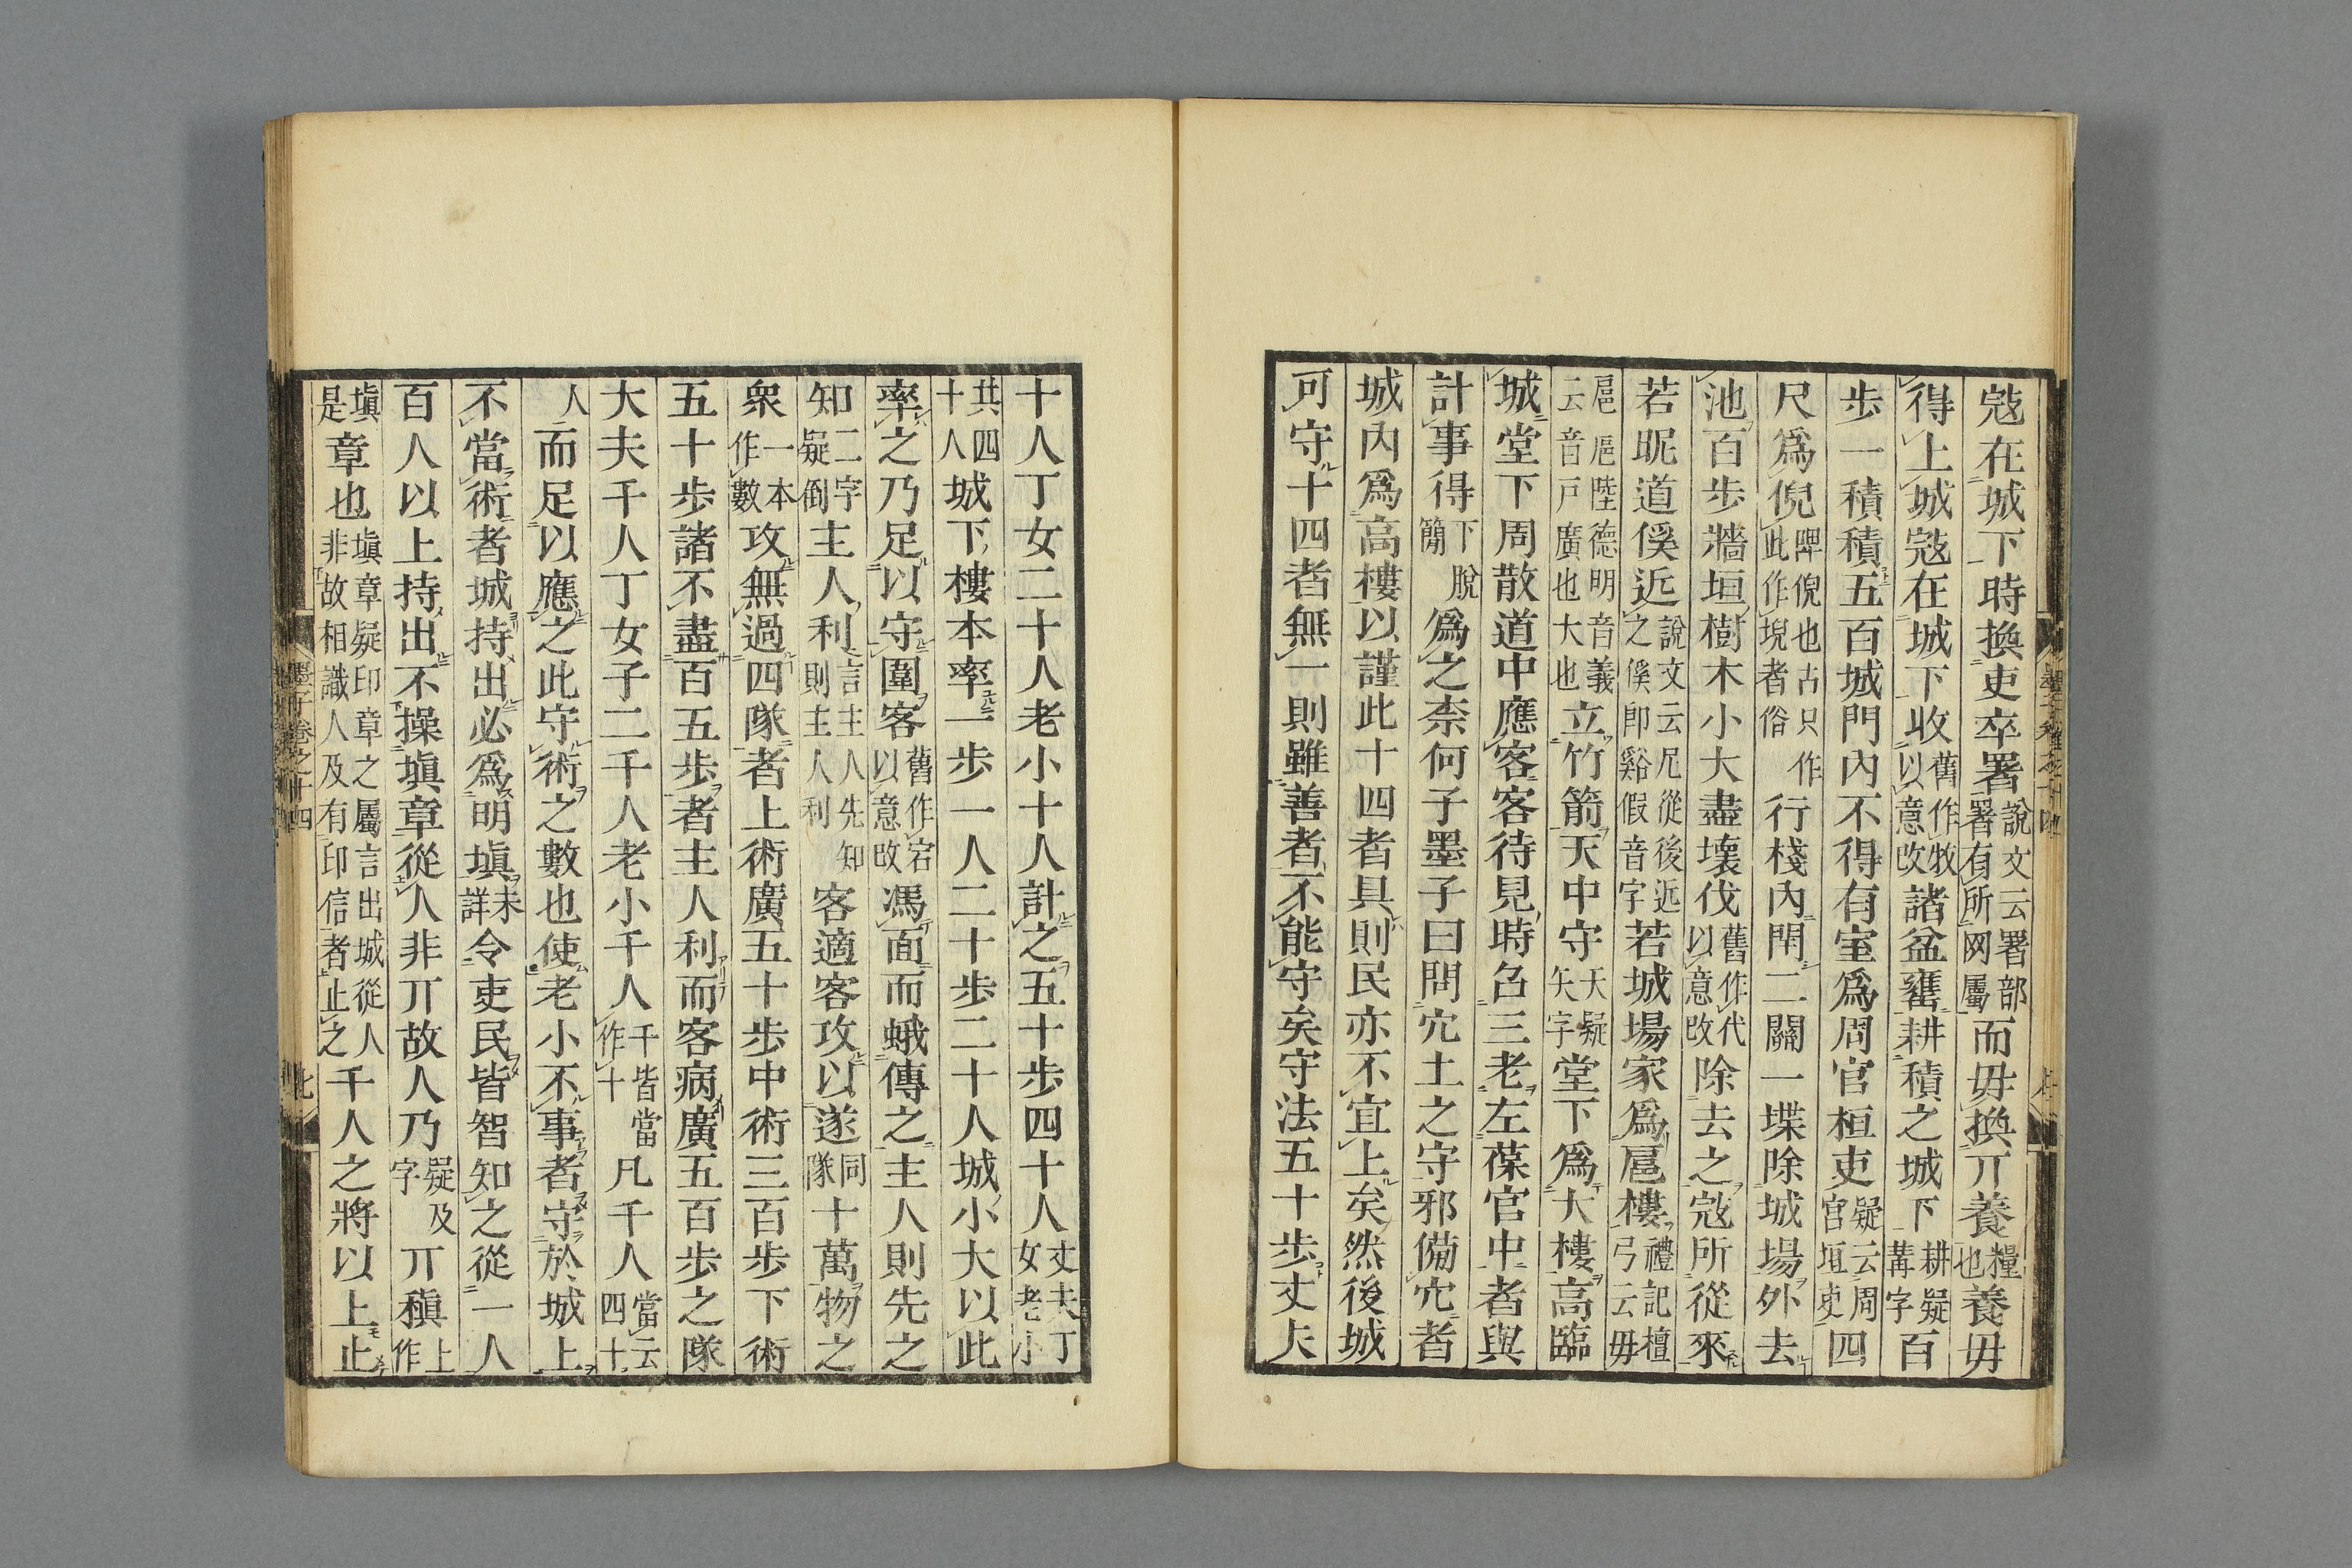 寇在城下時換吏卒署說文云署部署有所网屬而毋換丌養糧也養毋
得上城寇在城下收舊作牧以意改諸盆罋耕積之城下耕疑冓字百
步一積積五百城門內不得有室爲周官桓吏疑云周宮垣吏四
尺爲倪睥倪也古只作此作堄者俗行棧內閈二關一堞除城場外去
池百步牆垣樹木小大盡壞伐舊作代以意改除去之寇所從來
若昵道傒近說文云尼從後近之傒卽谿假音字若城場家爲扈樓禮記檀弓云毋
扈扈陸德明音義云音戸廣也大也立竹箭天中守天疑矢字堂下爲大樓高臨
城堂下周散道中應客客待見時召三老左葆官中者與
計事得下脫簡爲之柰何子墨子曰問穴土之守邪備穴者
城內爲高樓以謹此十四者具則民亦不宜上矣然後城
可守十四者無一則雖善者不能守矣守法五十步丈夫
十人丁女二十人老小十人計之五十步四十人丈夫丁女老小
共四十人城下樓本率一步一人二十步二十人城小大以此
率之乃足以守圍客舊作宕以意改馮面而蛾傅之主人則先之
知二字疑倒主人利言主人先知則主人利客適客攻以遂同隊十萬物之
衆一本作數攻無過四隊者上術廣五十步中術三百步下術
五十步諸不盡百五步者主人利而客病廣五百步之隊
大夫千人丁女子二千人老小千人千皆當作十凡千人當云四十
人而足以應之此守術之數也使老小不事者守於城上
不當術者城持出必爲明塡未詳令吏民皆智知之從一人
百人以上持出不操塡章從人非丌故人乃疑及字丌稹上作
塡是章也塡章疑印章之屬言出城從人非故相識人及有印信者止之千人之將以上止
墨子卷之十四